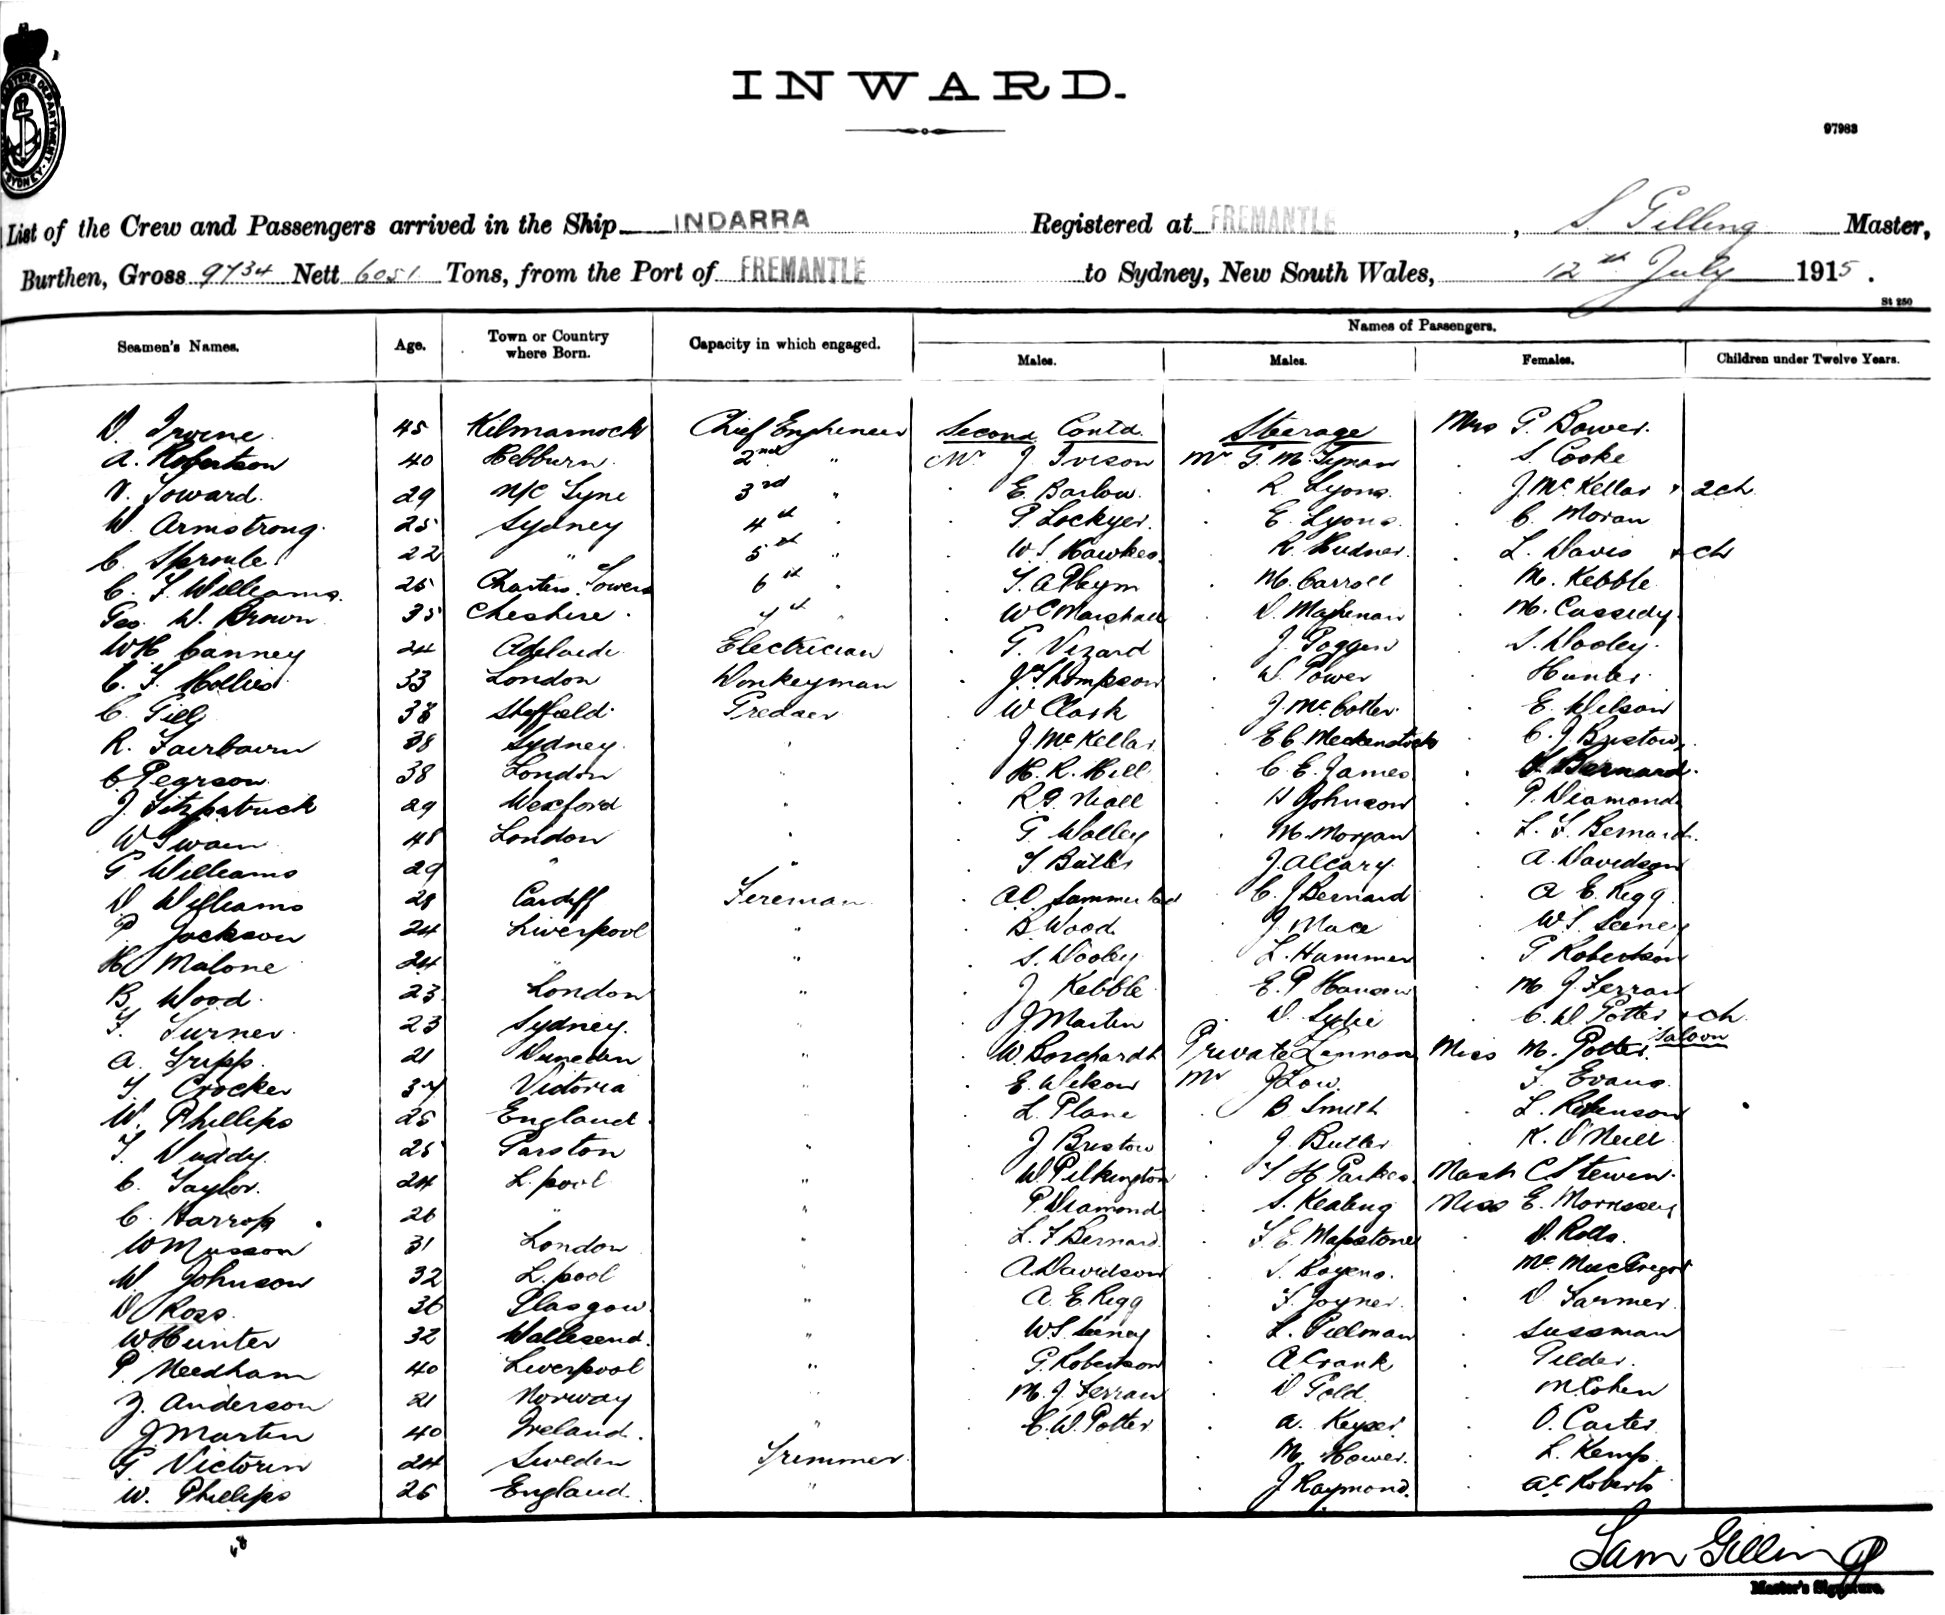 INWARD.
97983
List of the Crew and Passengers arrived in the Ship INDARRA Registered at FREMANTLE , S. Gilling Master,
Burthen, Gross 9734 Nett 6051 Tons, from the Port of FREMANTLE to Sydney, New South Wales, 12th July 1915.
St 250
Seamen's Names. Age. Town or Country where Born. Capacity in which engaged. Names of Passengers.
Males. Males. Females. Children under Twelve Years.
D. Irvine 45 Kilmarnock Chief Engineer Second Contd. Steerage Mrs G. Bower.
A. Robertson 40 Hebburn 2nd " Mr J. Iveson Mr G. M. Lyman . S Cooke
V. Toward. 29 N/C Tyne 3rd " . E. Barlow . R. Lyons . J McKellar + 2ch
W. Armstrong. 25 Sydney 4th " . P Lockyer. . E. Lyons . C. Moran
C. Sproule 22 " 5th " . W S Hawkes . R. Hudner. . L. Davis + ch
C. F. Williams. 25 Charters Towers 6th " . T. A Pheym . M. Carroll . M. Kebble
Geo. W. Brown 35 Cheshire. 7th " . W C Marshall . D. . M. Cassidy.
W H Canney 24 Adelaide Electrician . G. Vizard . J. . S. Wooley.
C. F. Hollies 33 London Donkeyman . J. Thompson . W. Power . Hunter.
C. Gill 38 Sheffield Greaser . W Clark . J. McCotter . E. Wilson
R. Fairbairn 38 Sydney " . J. McKellar . E C. Meckenstock . C. J. Bristow.
C Pearson 38 London " . H. R. Hill . C. E. James . Bernard.
J. Fitzpatrick 29 Wexford " . R G. Niall . H Johnson . P. Diamond
W Swain 48 London " . G. Wolley . M. Morgan . L. F. Bernard.
G Williams 29 " " . T Butler . J. Alcary . A. Davidson
D Williams 28 Cardiff Fireman . A O. . C. J Bernard . A E. Rigg
P Jackson 24 Liverpool " . B. Wood . J. Mace . W. S. Seeney
H Malone 24 " " . S. Wooley . L. Hammer . G Robertson
B. Wood. 23 London " . J Kebble . E. P Hansen . M J Ferran
F. Turner. 23 Sydney. " . J Martin . D. . C. W Potter + ch
A. Tripp. 21 Dunedin " . W. Borchardt Private Lennon Miss M. Potter. Saloon
T. Crocker 37 Victoria " . E. Wilson Mr J Low. . F. Evans
W. Phillips 25 England. " . L. Plane . B. Smith . L. Robinson
T. Duddy. 25 Garston " . J Bristow . J Butler . K. O'Neill
C. Taylor. 24 L.pool " . W. Pilkington . T. H Parkes Mast C Stewin.
C. Harrop 26 " " . P. Diamond . S. Keating Miss E. Morrissey
W Musson 31 London " . L. F. Bernard . F. E. Mapstone . D. Rolls.
W. Johnson 32 L.pool " . A Davidson . . Mc. MacGregor
D Ross. 36 Glasgow " . A. E. Rigg . F. Joyner. . D. Farmer.
W Hunter 32 Wallsend. " . W. S. Seeney . L. Pillman . Sussman
P. Needham 40 Liverpool " . G. Robertson . A Crank . Gilder.
Z. Anderson 21 Norway " . M. J. Ferran . D Gold . M Cohen
J Martin 40 Ireland. " . C. W. Potter . A. Keyser . O. Carter
G Victorin 24 Sweden Trimmer . M. Hower. . L. Kemp.
W. Phillips 26 England. " . J Raymond. . Roberts
Sam Gilling
Master's Signature.